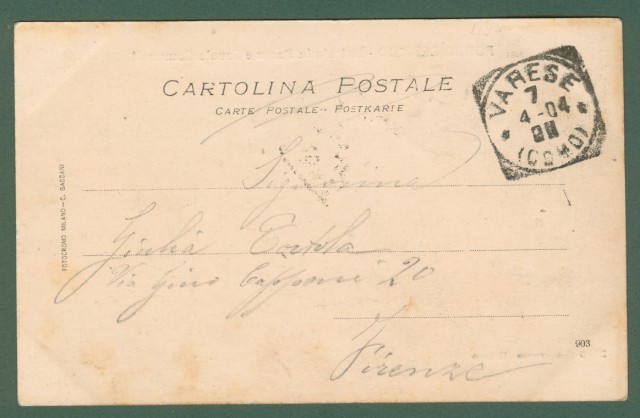 CARTOLINA POSTALE
CARTE POSTALE - POSTKARIE
VARESE
7
4-04
(COMO)
Signorina
Giulia
Via Gino Capponi 20
Firenze
FOTOCROMO MILANO - C.
903